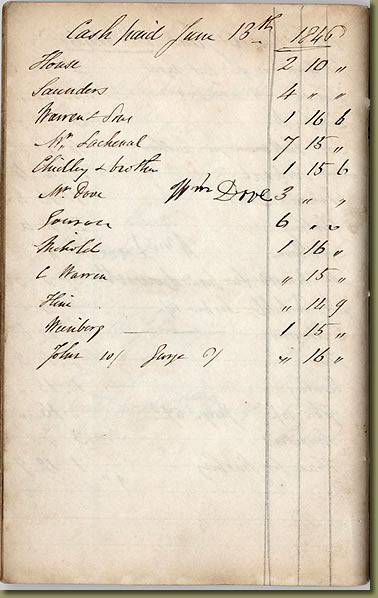 Cash paid June 13th 1846
House 2 10 "
Saunders 4 " "
Warren & Son 1 16 6
Mr. Lachenal 7 15 "
Chidley & brother 1 15 6
Mr Dove Wm Dove 3 " "
6 " "
1 16 "
C Warren " 15 "
Hine " 14 9
Weinberg 1 15 "
John 10/ George 7/ " 16 "